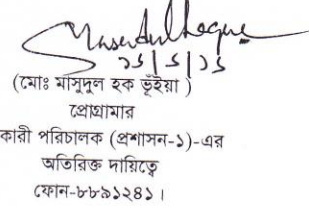 (মোঃ মাসুদুল হক ভূঁইয়া )
প্রোগ্রামার
কারী পরিচালক (প্রশাসন-১)-এর
অতিরিক্ত দায়িত্বে
ফোন-৮৮৯১২৪১।